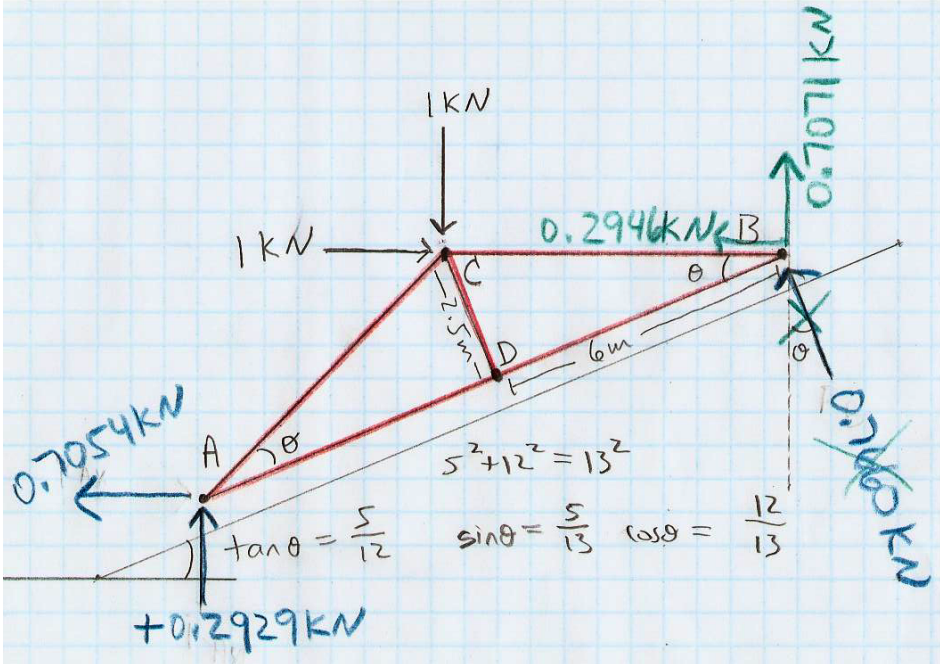 1KN
0.7071KN
1KN
0.2946KN
B
C
θ
2.5m
D
6m
θ
A
θ
0.7054KN
5²+12²=13²
0.7660KN
tanθ = 5/12
sinθ = 5/13
cosθ = 12/13
+0.2929KN